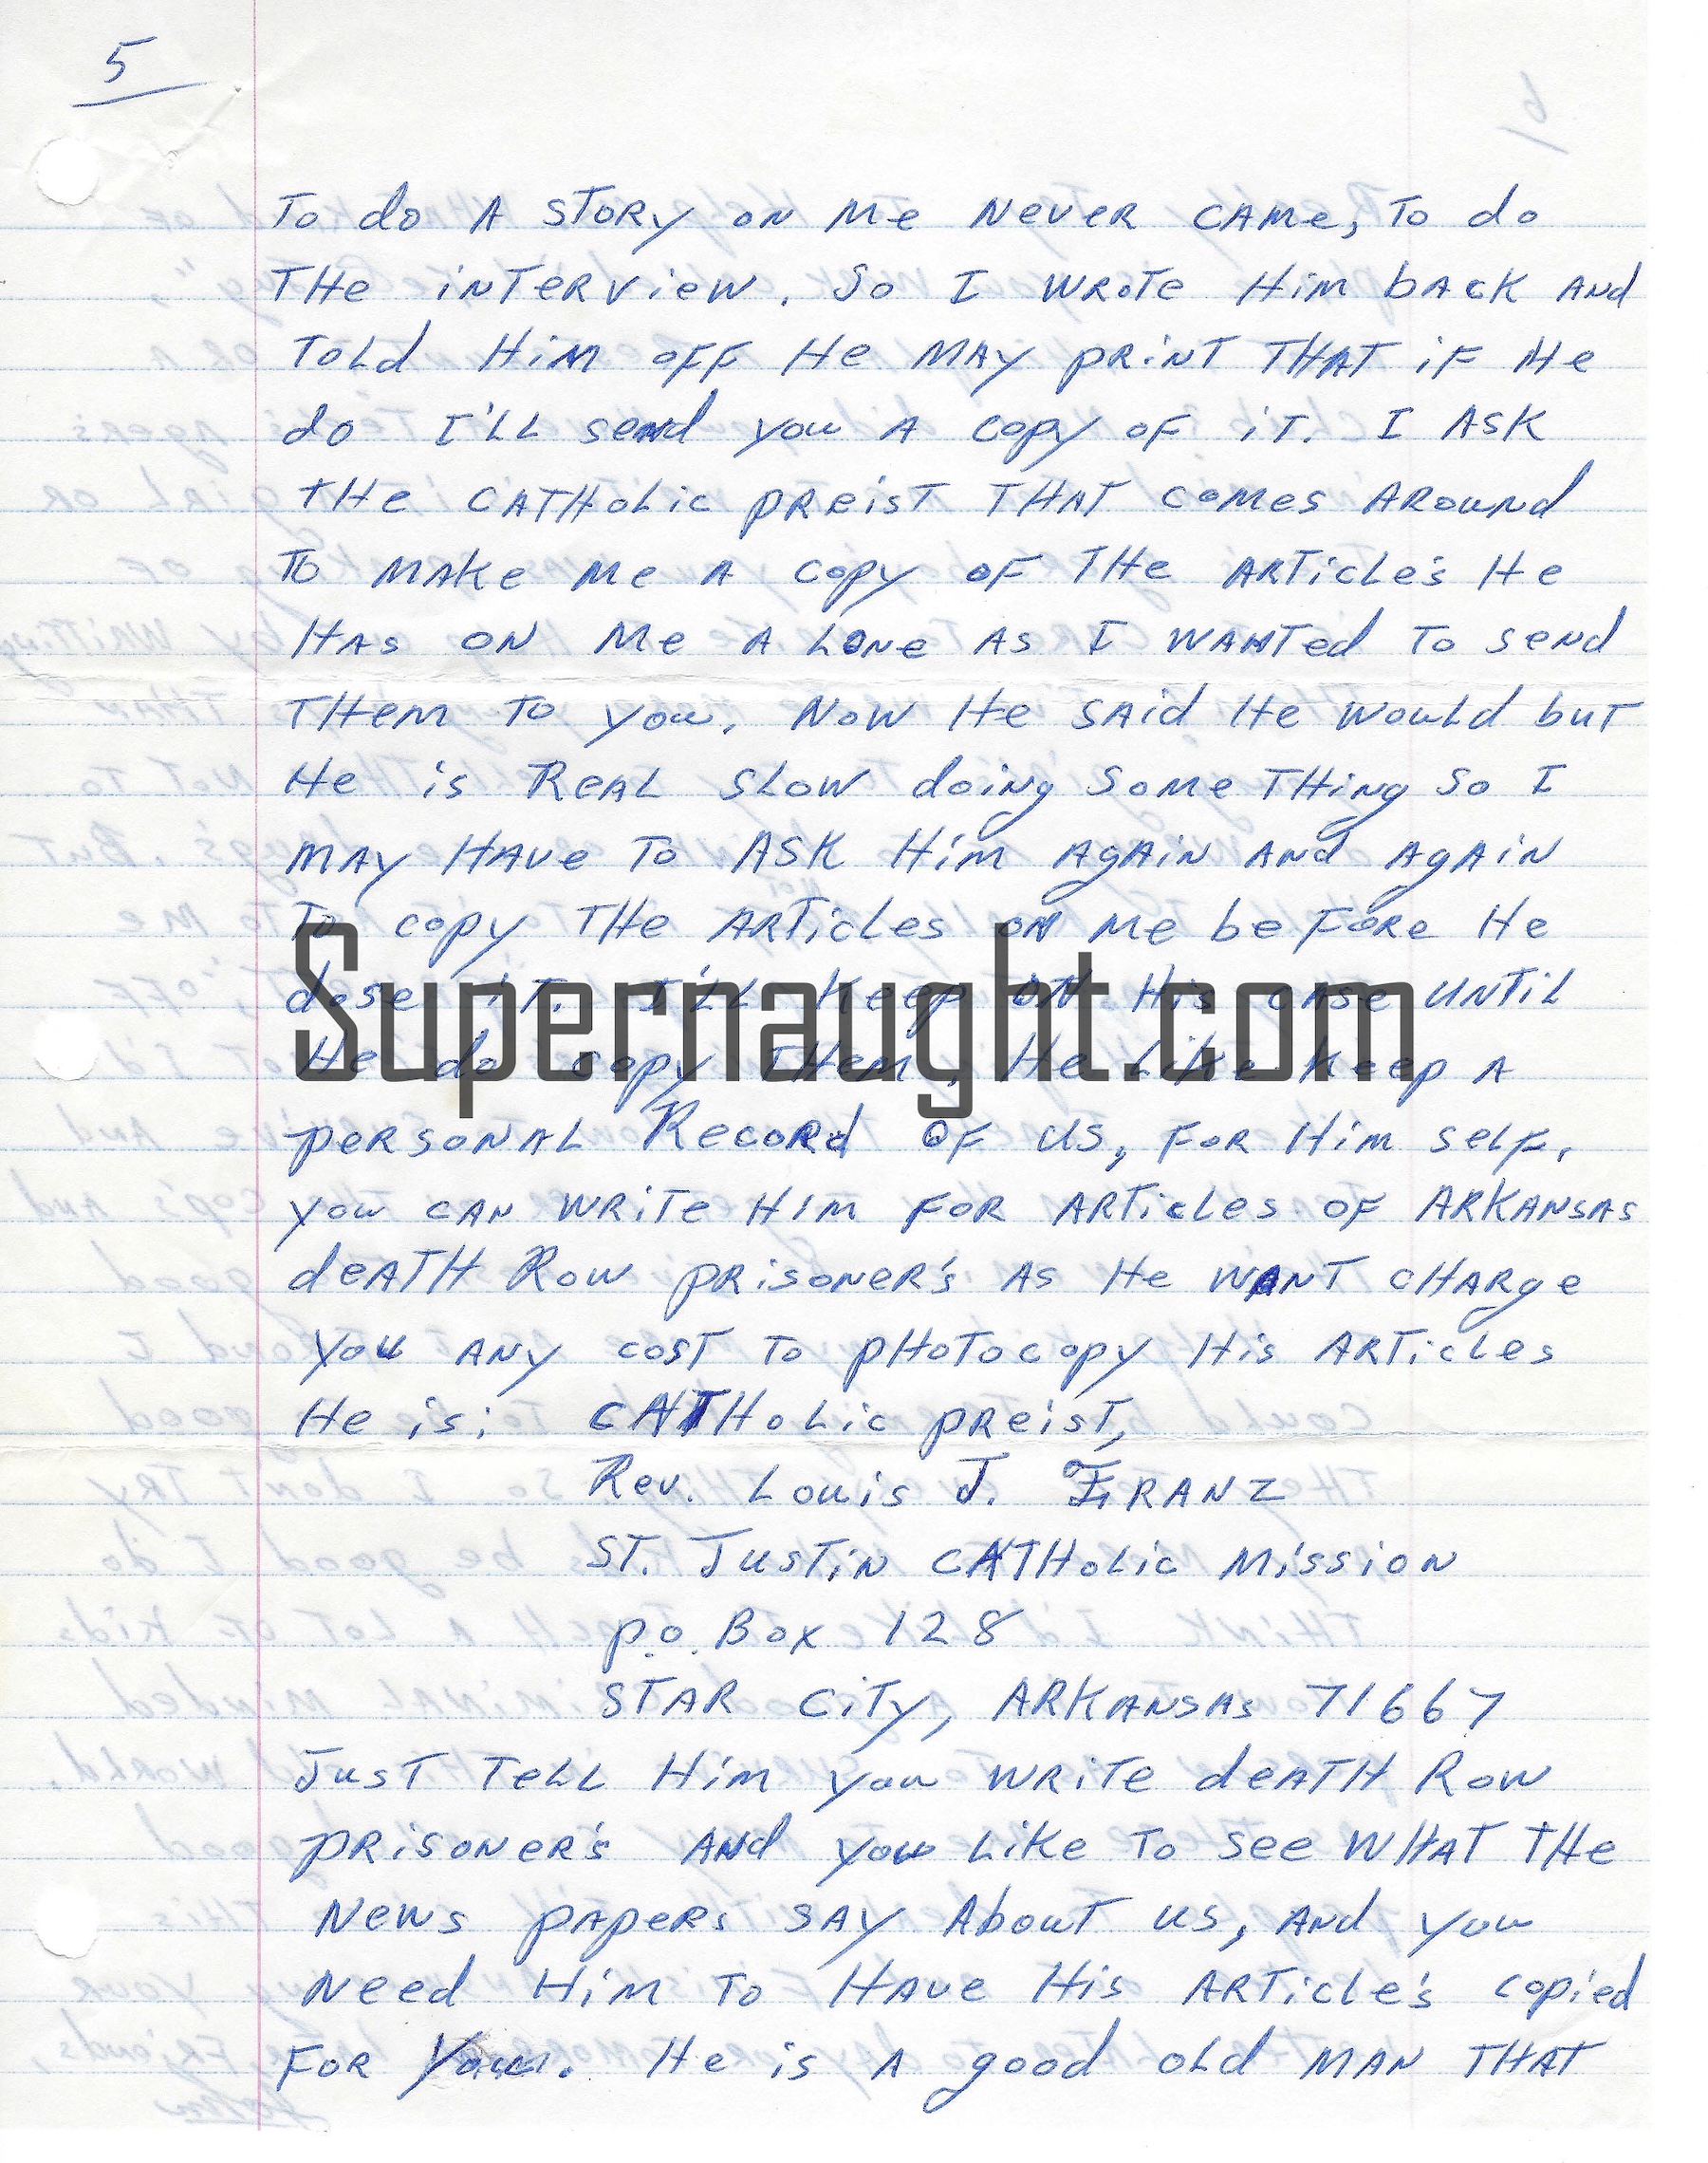 5
To do A STORY ON Me NeveR CAMe, To do
THe iNTeRView. So I WROTe Him bACK ANd
ToLd HiM OFF He MAY PRiNT THAT iF He
do I'LL seNd you A copy OF iT. I ASK
THe CATHoLic PReisT THAT comes ARouNd
To MAKe Me A copy OF THe ARTicLe's He
HAs ON Me A LONe As I WANTed To seNd
THem To you. Now He sAid He WouLd buT
He is ReAL SLOW doiNg some THiNg so I
MAY HAVe To ASK Him AgAiN ANd AgAiN
To copy THe ARTicLes ON Me beFoRe He
dose iT. I'LL Keep ON His cAse uNTiL
He do copy THem, He Like Keep A
peRSONAL RecoRd OF us, FOR Him seLF.
you cAN WRiTe Him FOR ARTicLes OF ARKANSAS
deATH Row PRisoNeR's As He WANT cHARge
you ANY cosT To pHoTocopy His ARTicLes
He is: CATHoLic PReisT,
Rev. Louis J. FRANZ
ST. JusTiN CATHoLic Mission
p.o. Box 128
STAR CiTy, ARKANSAs 71667
JusT TeLL Him you WRiTe deATH Row
PRisoNeR's ANd you Like To see WHAT THe
News pApeRs SAY AbouT us, ANd you
Need Him To HAve His ARTicLe's copied
FOR you. He is A good oLd MAN THAT
Supernaught.com